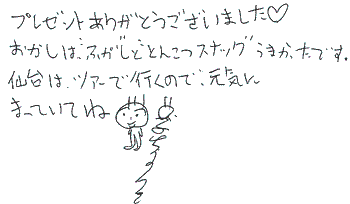 プレゼントありがとうございました♡
おかしは、ふがしとどんこつスナックうまかったです。
仙台は、ツアーで行くので、元気に
まっていてね